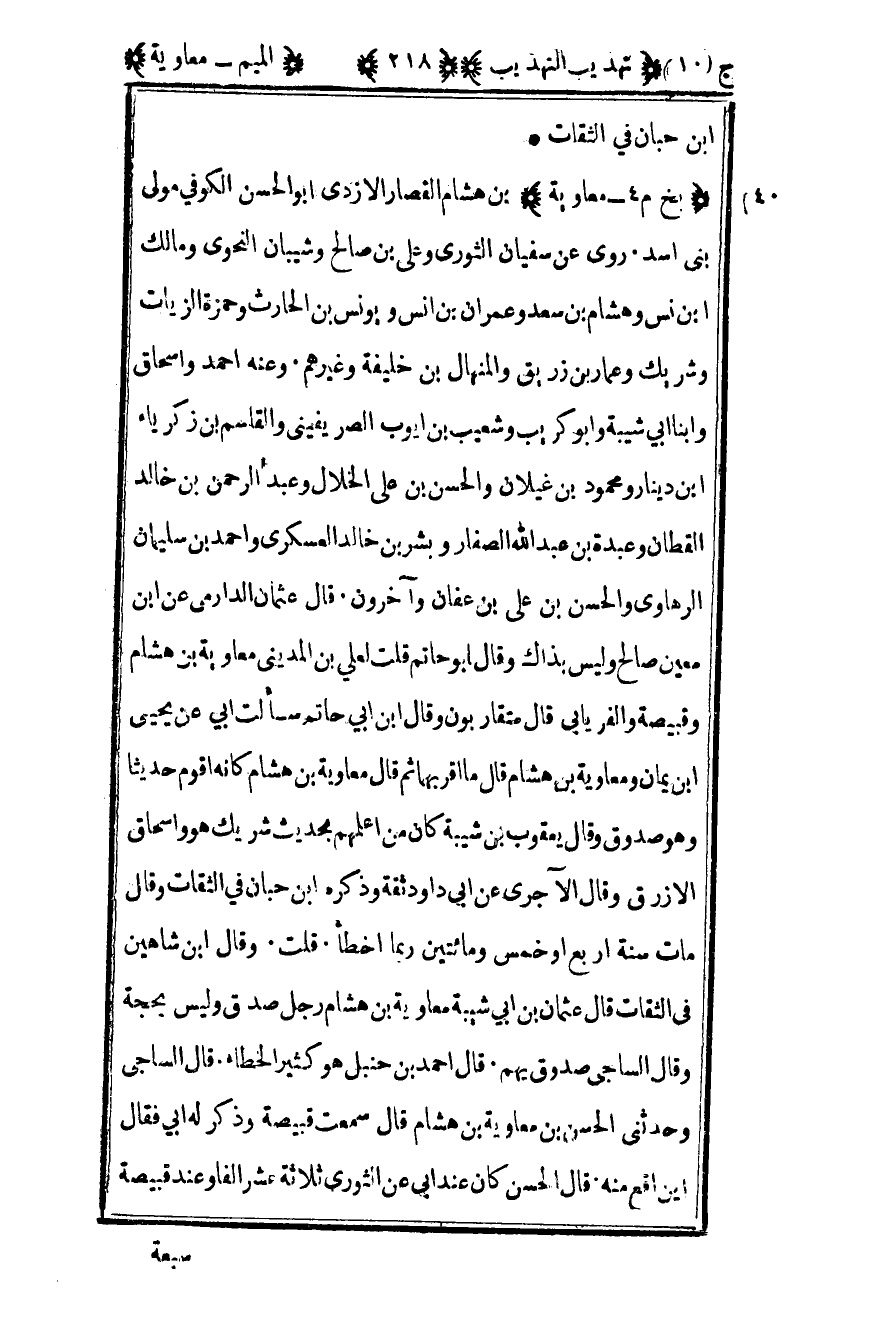 ج (١٠) ﴿ تهذيب التهذيب ﴾ ﴿ ٢١٨ ﴾ ﴿ الميم ـ معاوية ﴾
ابن حبان في الثقات •
٤٠) ﴿ بخ م ٤ ـ معاوية ﴾ بن هشام القصار الازدى ابو الحسن الكوفي مولى
بنى اسد . روى عن سفيان الثورى وعلى بن صالح وشيبان النحوى ومالك
ابن نس وهشام بن سعد وعمران بن انس ويونس بن الحارث وحمزة الزيات
وشريك وعمار بن زريق والمنهال بن خليفة وغيرهم . وعنه احمد واسحاق
وابنا ابي شيبة وابو كريب وشعيب بن ايوب الصريفينى والقاسم بن زكرياء
ابن دينار ومحمود بن غيلان والحسن بن على الخلال وعبد الرحمن بن خالد
القطان وعبدة بن عبد الله الصفار وبشر بن خالد العسكرى واحمد بن سليمان
الرهاوى والحسن بن على بن عفان وآخرون . قال عثمان الدارمى عن ابن
معين صالح وليس بذاك وقال ابو حاتم قلت لعلي بن المدينى معاوية بن هشام
وقبيصة والفريابى قال متقاربون وقال ابن ابي حاتم سألت ابي عن يحيى
ابن يمان ومعاوية بن هشام قال ما اقربهما ثم قال معاوية بن هشام كانه اقوم حديثا
وهو صدوق وقال يعقوب بن شيبة كان من اعلمهم بحديث شريك هو واسحاق
الازرق وقال الآجرى عن ابى داود ثقة وذكره ابن حبان في الثقات وقال
مات سنة اربع او خمس ومائتين ربما اخطأ . قلت . وقال ابن شاهين
فى الثقات قال عثمان بن ابي شيبة معاوية بن هشام رجل صدق وليس بحجة
وقال الساجى صدوق يهم . قال احمد بن حنبل هو كثير الخطاء . قال الساجى
وحدثنى الحسن بن معاوية بن هشام قال سمعت قبيصة وذكر له ابي فقال
اين اقع منه . قال الحسن كان عند ابى عن الثورى ثلاثة عشر الفا وعند قبيصة
سبعة